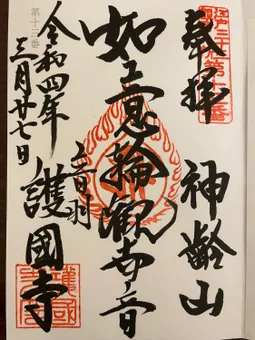 奉拝
神齢山
如意輪観世音
音羽
護國寺
令和四年
三月廿七日
第十三番